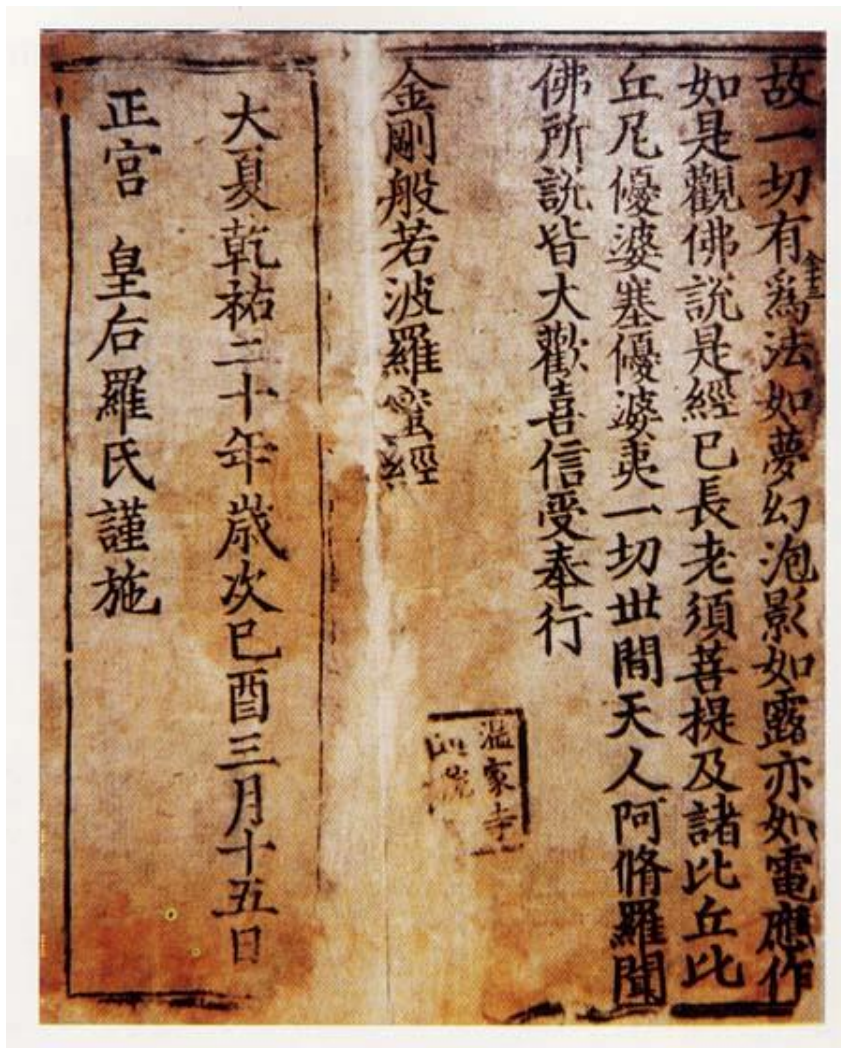 故一切有爲法如夢幻泡影如露亦如電應作
金十三
如是觀佛說是經已長老須菩提及諸比丘比
丘尼優婆塞優婆夷一切世間天人阿脩羅聞
佛所說皆大歡喜信受奉行
金剛般若波羅蜜經
溫家寺
大夏乾祐二十年歲次己酉三月十五日
正宮 皇后羅氏謹施